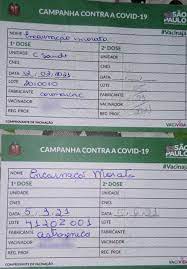 CAMPANHA CONTRA A COVID-19
SÃO PAULO
#Vacinaj
NOME Encarnação Morata
1ª DOSE 2ª DOSE
UNIDADE C. Saude UNIDADE
CNES CNES
DATA DATA
LOTE 2010010 LOTE
FABRICANTE coronavac FABRICANTE
VACINADOR VACINADOR
REG. PROF. REG. PROF.
COMPROVANTE DE VACINAÇÃO
CAMPANHA CONTRA A COVID-19
SÃO PAULO
#Vacinaj
NOME Encarnacó Morata
1ª DOSE 2ª DOSE
UNIDADE UNIDADE
CNES CNES
DATA 5.3.21 DATA
LOTE 41202001 LOTE
FABRICANTE FABRICANTE
VACINADOR VACINADOR
REG. PROF. REG. PROF.
COMPROVANTE DE VACINAÇÃO